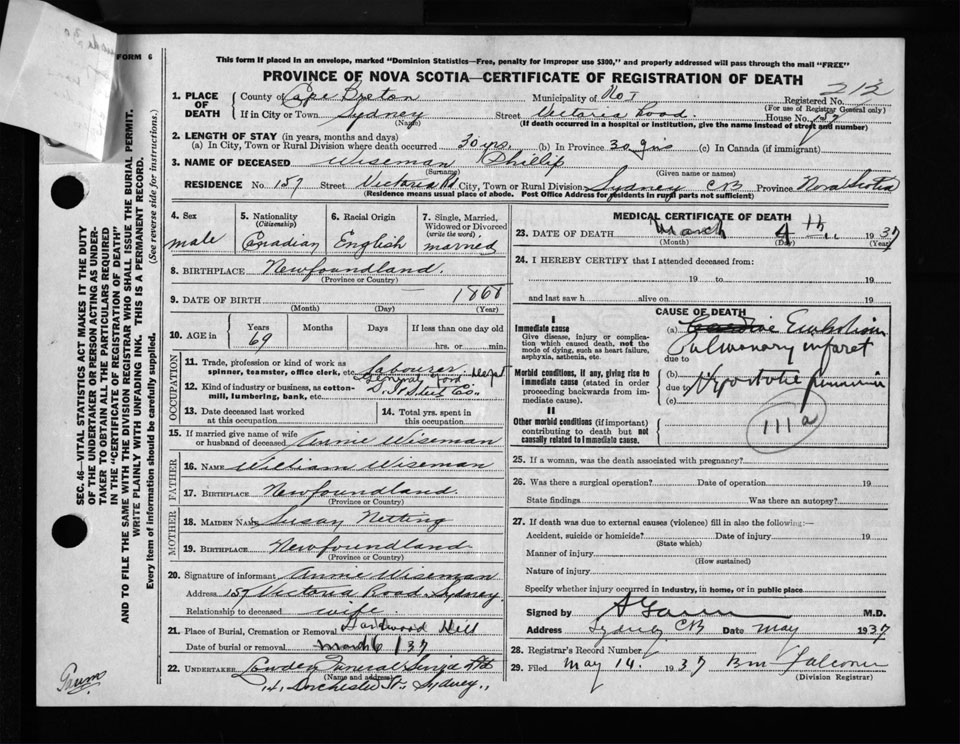 FORM 6
This form if placed in an envelope, marked "Dominion Statistics—Free, penalty for improper use $300," and properly addressed will pass through the mail "FREE"
PROVINCE OF NOVA SCOTIA—CERTIFICATE OF REGISTRATION OF DEATH
212
1. PLACE OF DEATH County of Cape Breton Municipality of No 1 Registered No.
(For use of Registrar General only)
If in City or Town Sydney Street Victoria Road House No. 157
(Name) (If death occurred in a hospital or institution, give the name instead of street and number)
2. LENGTH OF STAY (in years, months and days)
(a) In City, Town or Rural Division where death occurred 30 yrs. (b) In Province 30 yrs (c) In Canada (if immigrant)
3. NAME OF DECEASED Wiseman Phillip
(Surname) (Given name or names)
RESIDENCE No. 157 Street Victoria Rd City, Town or Rural Division Sydney CB Province Nova Scotia
(Residence means usual place of abode. Post Office Address for residents in rural parts not sufficient)
4. Sex male
5. Nationality (Citizenship) Canadian
6. Racial Origin English
7. Single, Married, Widowed or Divorced (write the word) married
8. BIRTHPLACE Newfoundland.
(Province or Country)
9. DATE OF BIRTH — 1868
(Month) (Day) (Year)
10. AGE in Years 69 Months Days If less than one day old hrs. or min.
OCCUPATION
11. Trade, profession or kind of work as spinner, teamster, office clerk, etc. Labourer
12. Kind of industry or business, as cotton-mill, lumbering, bank, etc. General Yard Dept
Steel Co.
13. Date deceased last worked at this occupation
14. Total yrs. spent in this occupation
15. If married give name of wife or husband of deceased Annie Wiseman
FATHER
16. NAME William Wiseman
17. BIRTHPLACE Newfoundland.
(Province or Country)
MOTHER
18. MAIDEN NAME Susan Netting
19. BIRTHPLACE Newfoundland.
(Province or Country)
20. Signature of informant Annie Wiseman
Address 157 Victoria Road Sydney
Relationship to deceased wife.
21. Place of Burial, Cremation or Removal Hardwood Hill
Date of burial or removal March 6/37
22. UNDERTAKER Funeral Service Ltd
(Name and address)
Dorchester St. Sydney.
MEDICAL CERTIFICATE OF DEATH
23. DATE OF DEATH March 4th 1937
(Month) (Day) (Year)
24. I HEREBY CERTIFY that I attended deceased from:
19 to 19
and last saw h alive on 19
CAUSE OF DEATH
I
Immediate cause
Give disease, injury or complication which caused death, not the mode of dying, such as heart failure, asphyxia, asthenia, etc.
(a) Embolism
Pulmonary infarct
due to
Morbid conditions, if any, giving rise to immediate cause (stated in order proceeding backwards from immediate cause).
(b)
due to Hypostatic pneumonia
(c)
II
Other morbid conditions (if important) contributing to death but not causally related to immediate cause.
111a
25. If a woman, was the death associated with pregnancy?
26. Was there a surgical operation? Date of operation 19
State findings Was there an autopsy?
27. If death was due to external causes (violence) fill in also the following:—
Accident, suicide or homicide? Date of injury 19
(State which)
Manner of injury
(How sustained)
Nature of injury
Specify whether injury occurred in industry, in home, or in public place
Signed by M.D.
Address Sydney CB Date May 1937
28. Registrar's Record Number
29. Filed May 14. 1937 Falconer
(Division Registrar)
SEC. 46—VITAL STATISTICS ACT MAKES IT THE DUTY
OF THE UNDERTAKER OR PERSON ACTING AS UNDERTAKER
TO OBTAIN ALL THE PARTICULARS REQUIRED
IN THE "CERTIFICATE OF REGISTRATION OF DEATH"
AND TO FILE THE SAME WITH THE DIVISION REGISTRAR WHO SHALL ISSUE THE BURIAL PERMIT.
WRITE PLAINLY WITH UNFADING INK. THIS IS A PERMANENT RECORD.
Every item of information should be carefully supplied. (See reverse side for instructions.)